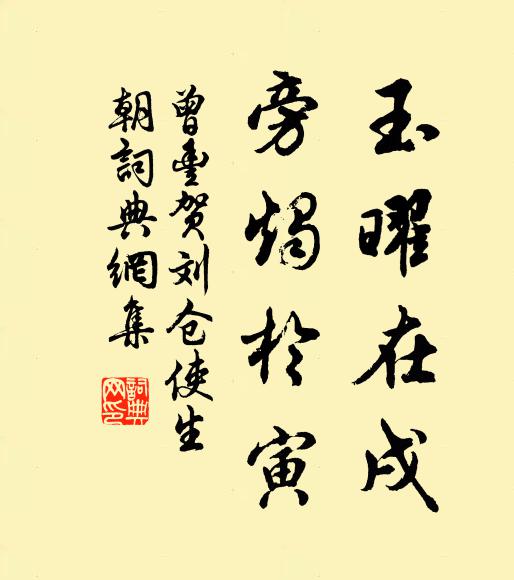 玉曜在戌
旁燭於寅
曾豐賀刘仓使生
朝詞典網集
詞典
网印